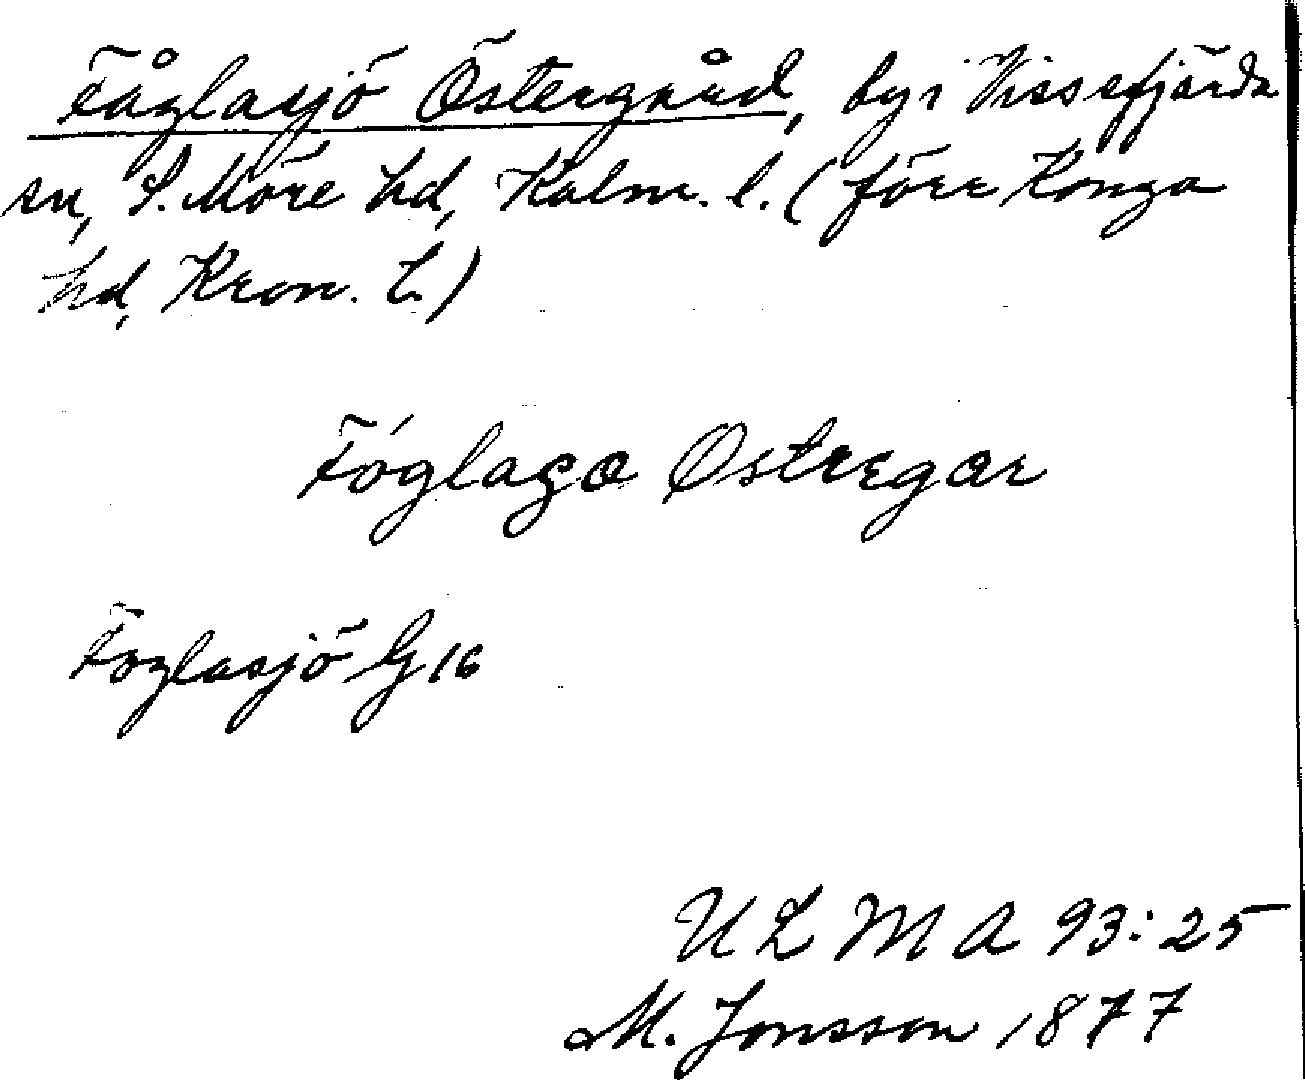 Fåglasjö Östergård, by i Vissefjärda
sn, S. Möre hd, Kalm. l. (förr Konga
hd, Kron. l.)
Fóglaʂo Ostregar
Foglasjö G 16
ULMA 93:25
M. Jonsson 1877